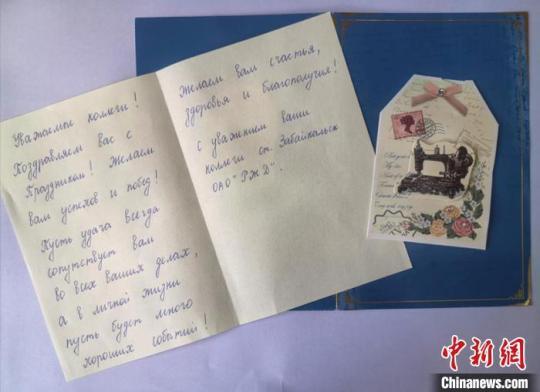 Уважаемые коллеги!
Поздравляем вас с
Праздником! Желаем
вам успехов и побед!
Пусть удача всегда
сопутствует вам
во всех ваших делах,
а в личной жизни
пусть будет много
хороших событий!
Желаем вам счастья,
здоровья и благополучия!
С уважением ваши
коллеги ст. Забайкальск
ОАО "РЖД".
中新网
Chinanews.com